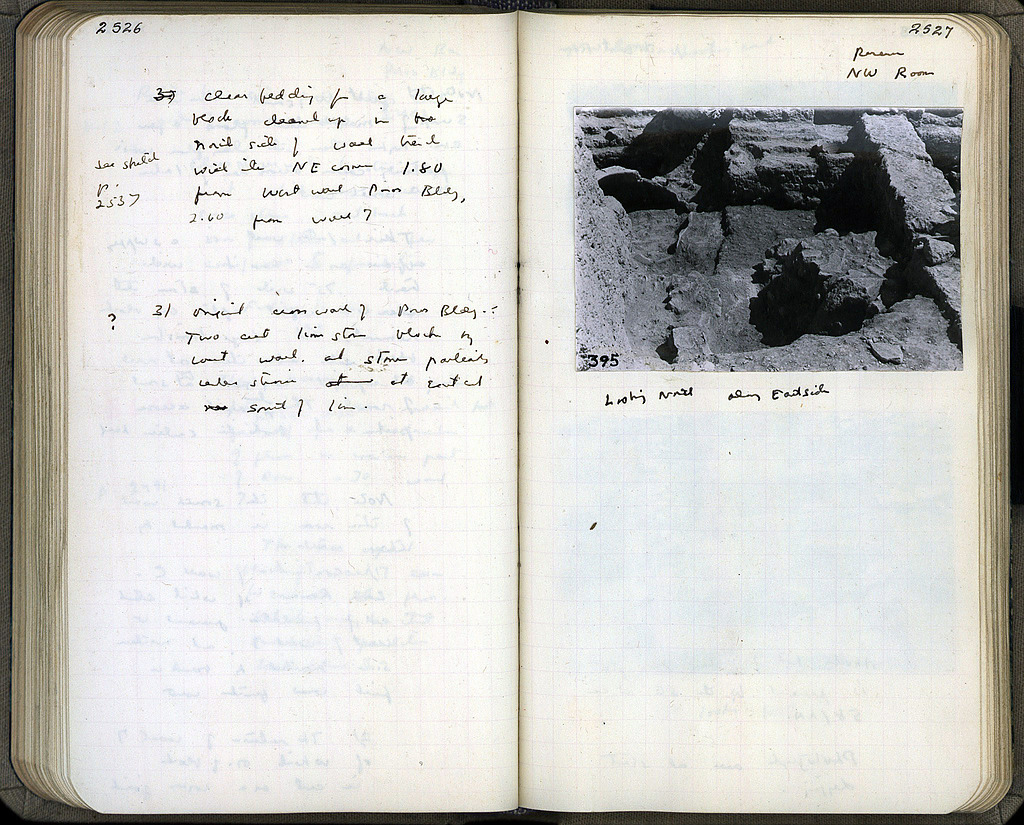 2526
3) clear bedding for a large
block cleared up in
North side of west trench
with its NE corner 1.80
from west wall Poros Bldg,
2.60 from wall 7
see sketch
p.
2537
?
3) original cross wall of Poros Bldg.:
Two cut limestone blocks by
west wall. at stone
at east end
south of line.
2527
NW Room
395
Looking North along East side